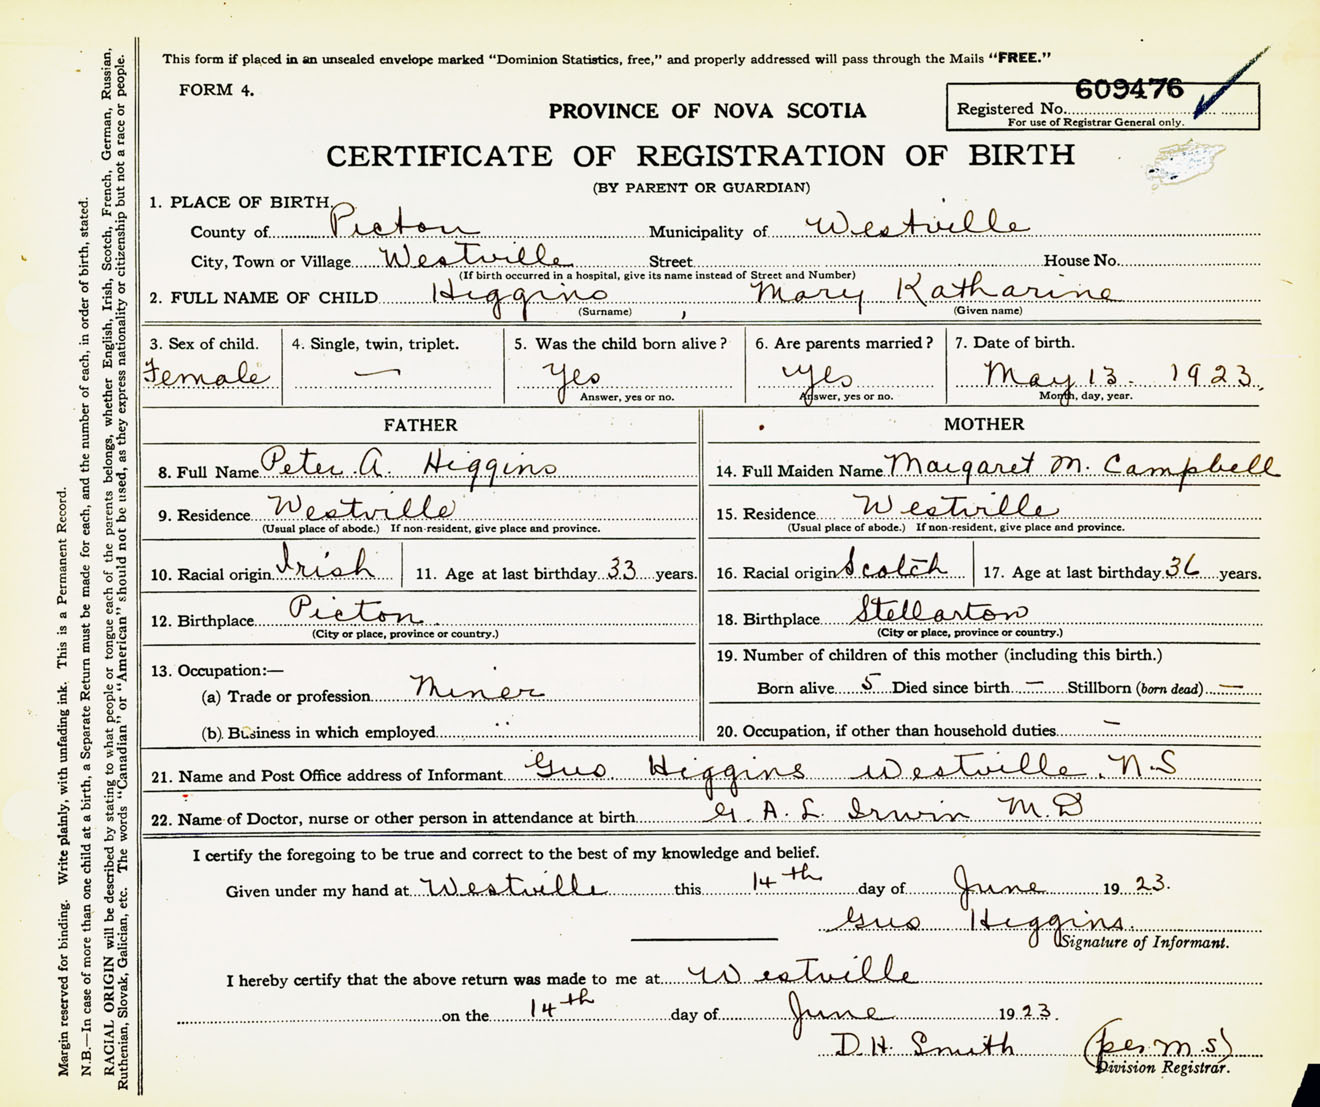 This form if placed in an unsealed envelope marked "Dominion Statistics, free," and properly addressed will pass through the Mails "FREE."
FORM 4.
609476
PROVINCE OF NOVA SCOTIA
Registered No.
For use of Registrar General only.
CERTIFICATE OF REGISTRATION OF BIRTH
(BY PARENT OR GUARDIAN)
1. PLACE OF BIRTH.
County of Picton Municipality of Westville
City, Town or Village Westville Street House No.
(If birth occurred in a hospital, give its name instead of Street and Number)
2. FULL NAME OF CHILD Higgins , Mary Katharine
(Surname) (Given name)
3. Sex of child. 4. Single, twin, triplet. 5. Was the child born alive? 6. Are parents married? 7. Date of birth.
Female — Yes Yes May 13. 1923.
Answer, yes or no. Answer, yes or no. Month, day, year.
FATHER MOTHER
8. Full Name Peter A. Higgins 14. Full Maiden Name Margaret M. Campbell
9. Residence Westville 15. Residence Westville
(Usual place of abode.) If non-resident, give place and province. (Usual place of abode.) If non-resident, give place and province.
10. Racial origin Irish 11. Age at last birthday 33 years. 16. Racial origin Scotch 17. Age at last birthday 36 years.
12. Birthplace Picton. 18. Birthplace Stellarton
(City or place, province or country.) (City or place, province or country.)
13. Occupation:— 19. Number of children of this mother (including this birth.)
(a) Trade or profession Miner Born alive 5 Died since birth — Stillborn (born dead) —
(b) Business in which employed " 20. Occupation, if other than household duties —
21. Name and Post Office address of Informant Gus. Higgins Westville, N.S
22. Name of Doctor, nurse or other person in attendance at birth G. A. L. Irwin M.D
I certify the foregoing to be true and correct to the best of my knowledge and belief.
Given under my hand at Westville this 14th day of June 1923.
Gus Higgins.
Signature of Informant.
I hereby certify that the above return was made to me at Westville
on the 14th day of June 1923.
D.H. Smith (per M.S)
Division Registrar.
Margin reserved for binding. Write plainly, with unfading ink. This is a Permanent Record.
N.B.—In case of more than one child at a birth, a Separate Return must be made for each, and the number of each, in order of birth, stated.
RACIAL ORIGIN will be described by stating to what people or tongue each of the parents belongs, whether English, Irish, Scotch, French, German, Russian,
Ruthenian, Slovak, Galician, etc. The words "Canadian" or "American" should not be used, as they express nationality or citizenship but not a race or people.